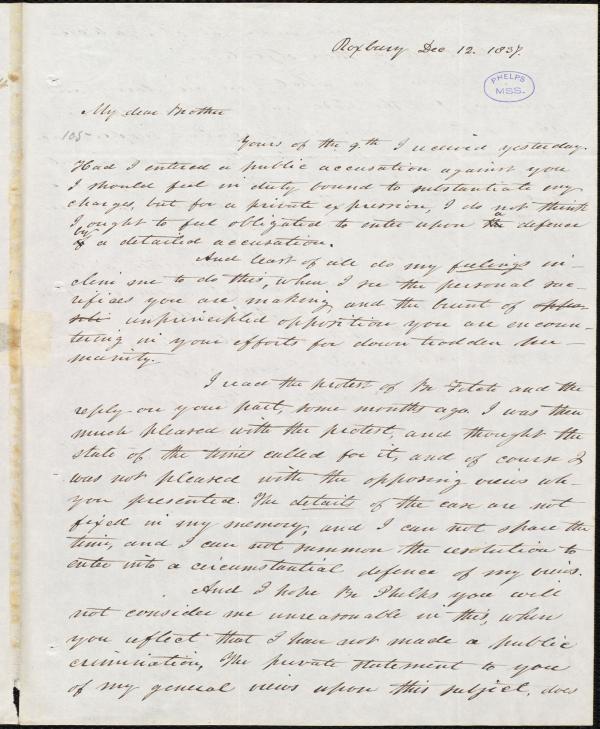 Roxbury Dec 12. 1837.
PHELPS
MSS.
My dear Brother
105
Yours of the 9.th I received yesterday.
Had I entered a public accusation against you
I should feel in duty bound to substantiate my
charges, but for a private expression, I do not think
I ought to feel obligated to enter upon a defence
or a detailed accusation.
And least of all do my feelings in-
cline me to do this, when I see the personal sac-
rifices you are making, and the brunt of
unprincipled opposition you are encoun-
tering in your efforts for down trodden hu-
manity.
I read the protest of Br Fitch and the
reply on your part, some months ago. I was then
much pleased with the protest, and thought the
state of the times called for it, and of course I
was not pleased with the opposing views wh-
you presented. The details of the case are not
fixed in my memory, and I can not spare the
time, and I can not summon the resolution to
enter into a circumstantial defence of my views.
And I hope Br Phelps you will
not consider me unreasonable in this, when
you reflect that I have not made a public
crimination, The private statement to you
of my general views upon this subject, does